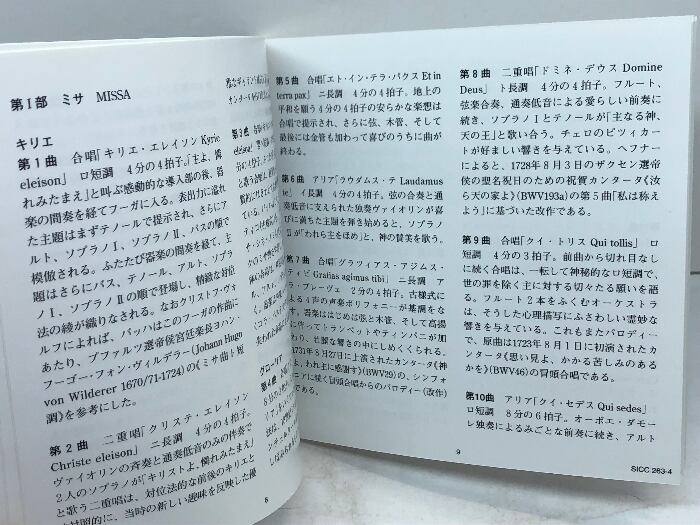 第Ⅰ部 ミサ MISSA
キリエ
第1曲 合唱「キリエ・エレイソン Kyrie
eleison」 ロ短調 4分の4拍子。「主よ、憐
れみたまえ」と叫ぶ感動的な導入部の後、器
楽の間奏を経てフーガに入る。表出力に溢れ
た主題はまずテノールで提示され、さらにア
ルト、ソプラノⅠ、ソプラノⅡ、バスの順で
模倣される。ふたたび器楽の間奏を経て、主
題はさらにバス、テノール、アルト、ソプラ
ノⅠ、ソプラノⅡの順で登場し、精緻な対位
法の綾が織りなされる。なおクリストフ・ヴォ
ルフによれば、バッハはこのフーガの作曲に
あたり、プファルツ選帝侯宮廷楽長ヨハン・
フーゴー・フォン・ヴィルデラー（Johann Hugo
von Wilderer 1670/71-1724）の《ミサ曲ト短
調》を参考にした。
第2曲 二重唱「クリステ・エレイソン
Christe eleison」 ニ長調 4分の4拍子。
ヴァイオリンの斉奏と通奏低音のみの伴奏で
2人のソプラノが「キリストよ、憐れみたまえ」
と歌う二重唱は、対位法的な前後のキリエと
は対照的に、当時の新しい趣味を反映した優
8
第5曲 合唱「エト・イン・テラ・パクス Et in
terra pax」 ニ長調 4分の4拍子。地上の
平和を願う4分の4拍子の安らかな楽想は
合唱で提示され、さらに弦、木管、そして
最後には金管も加わって喜びのうちに曲が
終わる。
第6曲 アリア「ラウダムス・テ Laudamus
イ長調 4分の4拍子。弦の合奏と通
奏低音に支えられた独奏ヴァイオリンが喜
びに満ちた主題を弾き始めると、ソプラノ
Ⅱが「われら主をほめ」と、神の賛美を歌う。
第7曲 合唱「グラツィアス・アジムス・
ティビ Gratias agimus tibi」 ニ長調 ア
ラ・ブレーヴェ 2分の4拍子。古様式に
よる4声の声楽ポリフォニーが基調をな
す。器楽ははじめは弦と木管、そして高揚
に伴ってトランペットやティンパニが加
わり、壮麗な響きの中にしめくくられる。
1731年8月27日に上演されたカンタータ《神
よ、われ主に感謝す》(BWV29)の、シンフォ
ニアに続く冒頭合唱からのパロディー（改作）
である。
第8曲 二重唱「ドミネ・デウス Domine
Deus」 ト長調 4分の4拍子。フルート、
弦楽合奏、通奏低音による愛らしい前奏に
続き、ソプラノⅠとテノールが「主なる神、
天の王」と歌い合う。チェロのピツィカー
トが好ましい響きを添えている。ヘフナー
によると、1728年8月3日のザクセン選帝
侯の聖名祝日のための祝賀カンタータ《汝
ら天の家よ》(BWV193a)の第5曲「私は称え
よう」に基づいた改作である。
第9曲 合唱「クイ・トリス Qui tollis」 ロ
短調 4分の3拍子。前曲から切れ目なし
に続く合唱は、一転して神秘的なロ短調で、
世の罪を除く主に対する切々たる願いを語
る。フルート2本をふくむオーケストラ
は、そうした心理描写にふさわしい霊妙な
響きを添えている。これもまたパロディー
で、原曲は1723年8月1日に初演された
カンタータ《思い見よ、かかる苦しみのある
かを》(BWV46)の冒頭合唱である。
第10曲 アリア「クイ・セデス Qui sedes」
ロ短調 8分の6拍子。オーボエ・ダモー
レ独奏によるみごとな前奏に続き、アルト
9
SICC 263-4